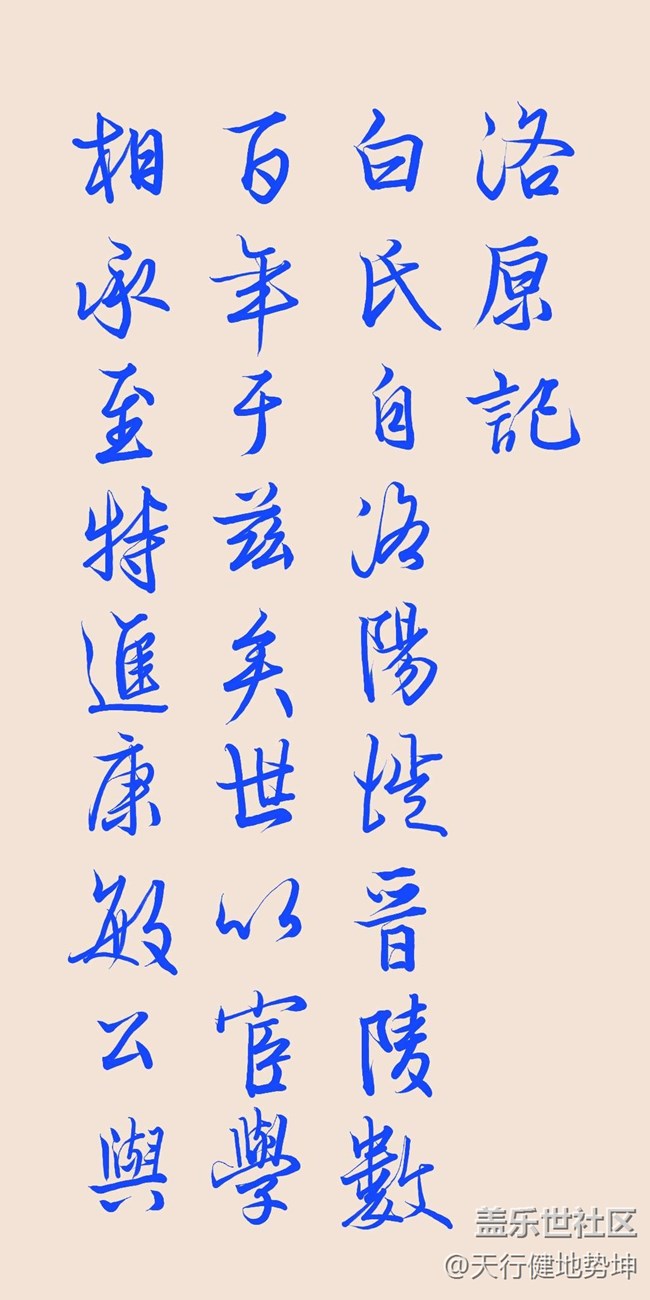 洛原記
白氏自洛陽徙晉陵數
百年于茲矣世以宦學
相承至特進康敏公與
盖乐世社区
@天行健地势坤